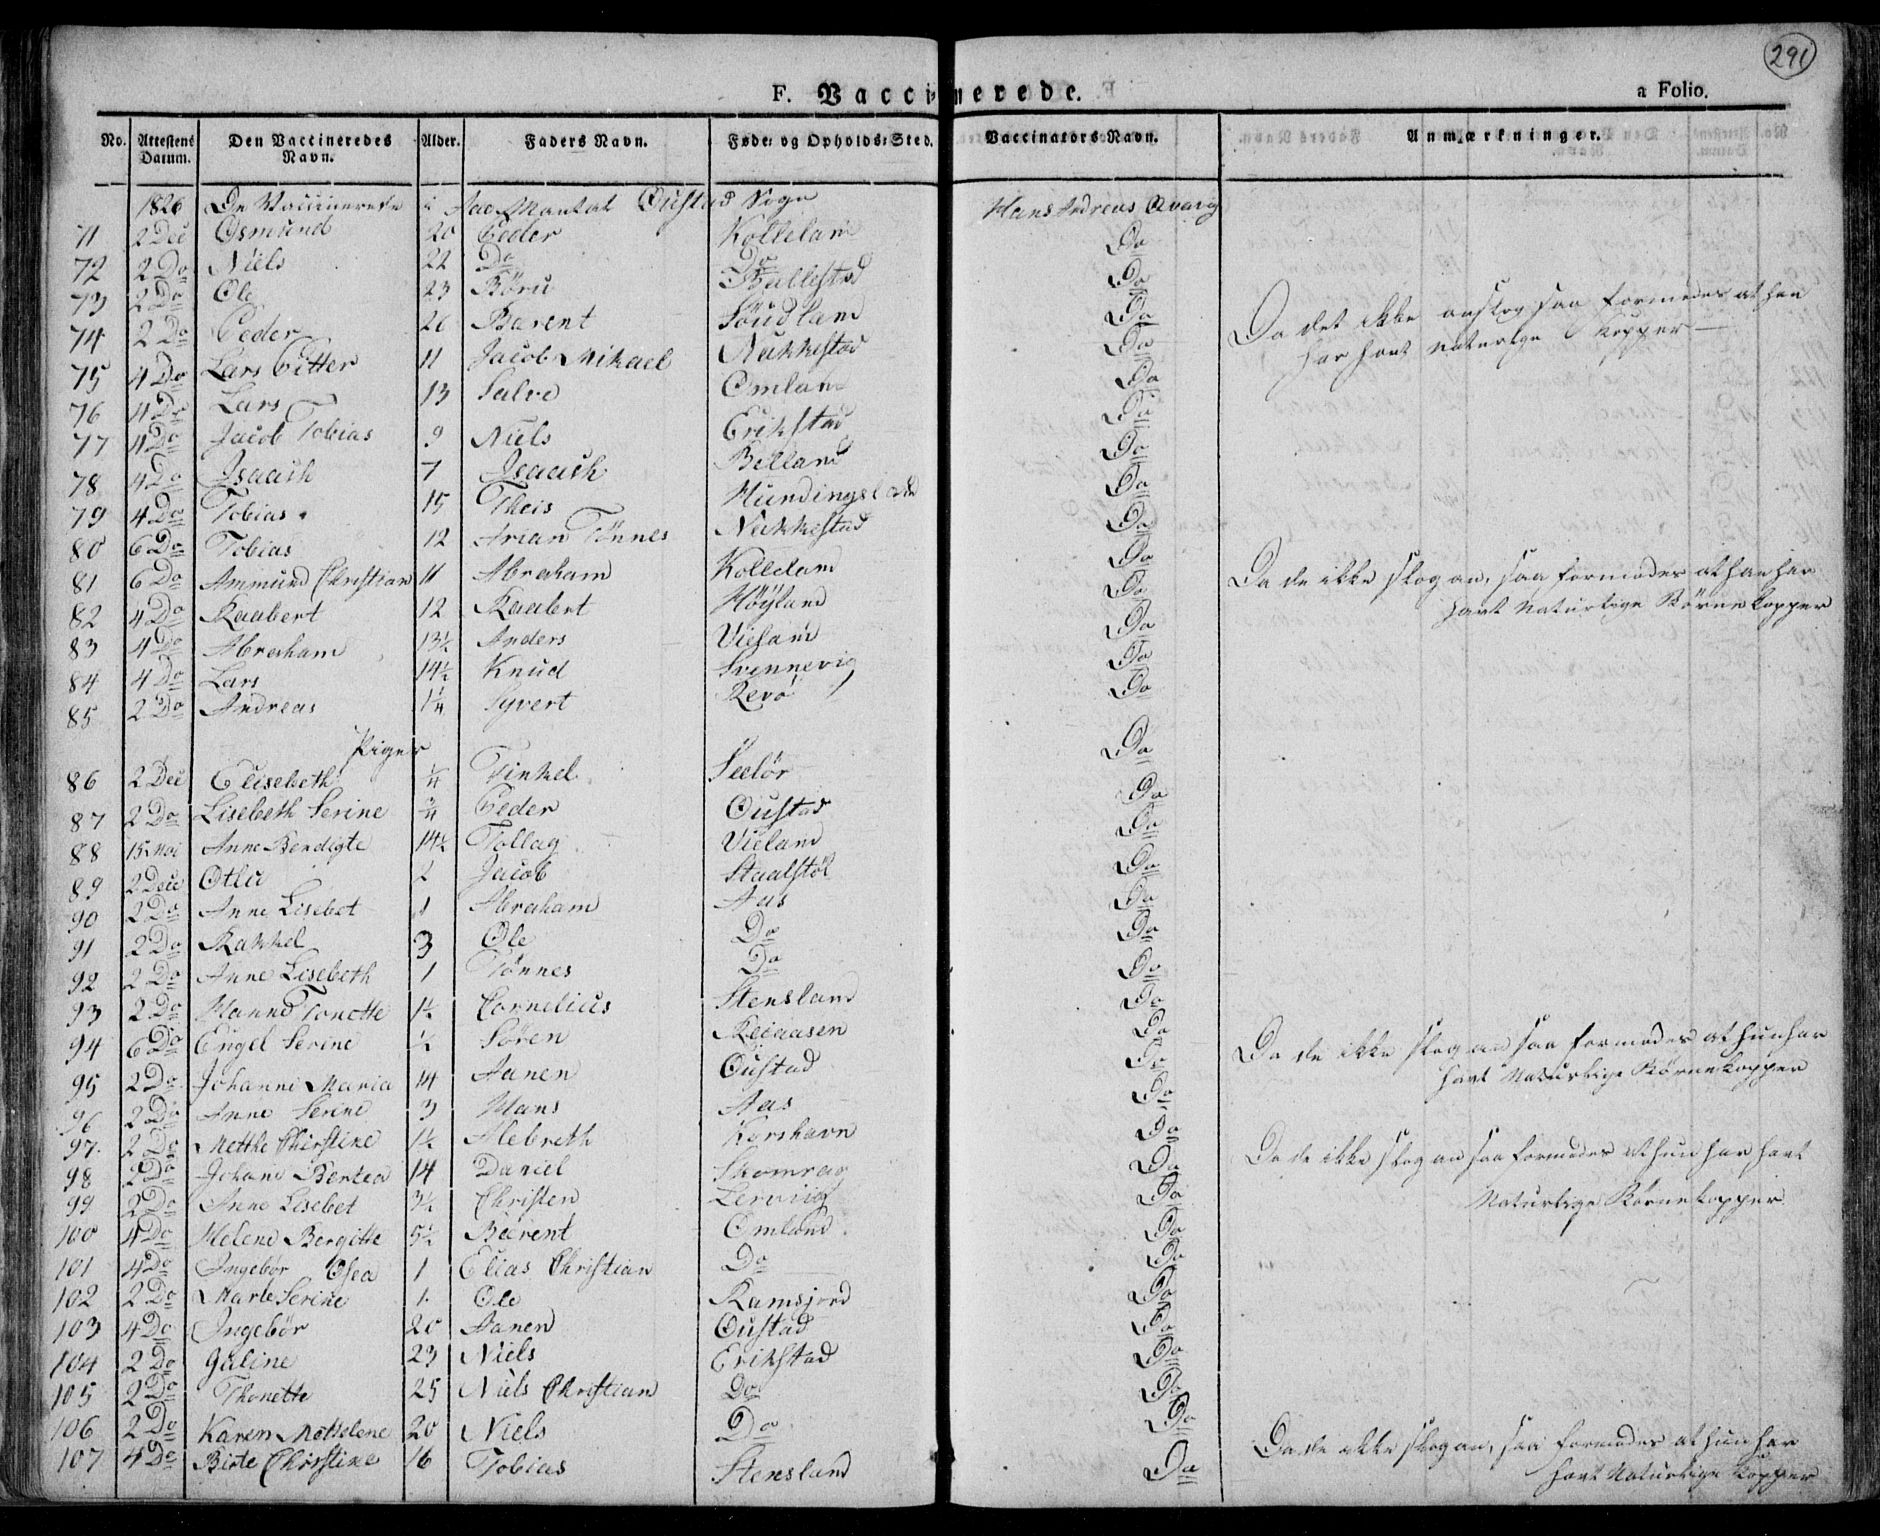 291
F. Vaccinerede.
a Folio.
No. Attestens Datum. Den Vaccineredes Navn. Alder. Faders Navn. Føde- og Opholds-Sted. Vaccinators Navn. Anmærkninger.
1826 De Vaccinerede i Oustad Sogn Hans Andreas Qvarig
71 2 Dec Osmund 20 Peder Kollelam Do
72 2 Do Niels 22 Do Do Do
73 2 Do Ole 23 Böru Ballestad Do
74 2 Do Peder 26 Barent Söudlam Do Da det ikke anslog saa formodes at han
har havt Naturlige Kopper
75 4 Do Lars Pitter 11 Jacob Mikael Nukkestad Do
76 4 Do Lars 13 Salve Omland Do
77 4 Do Jacob Tobias 9 Niels Erikstad Do
78 4 Do Isaach 7 Isaach Billand Do
79 4 Do Tobias 15 Theis Hundingsland Do
80 6 Do Tobias 12 Arian Tönnes Nukkestad Do
81 6 Do Ammund Christian 11 Abraham Kollelam Do Da de ikke slog an, saa formodes at han har
havt Naturlige Börnekopper
82 4 Do Raabert 12 Raabert Höyland Do
83 4 Do Abraham 13½ Anders Vieland Do
84 4 Do Lars 14½ Knud Svennevig Do
85 2 Do Andreas 1¼ Syvert Revö Do
Piger
86 2 Dec Elisebeth ¼ Tinkel Seelör Do
87 2 Do Lisebeth Serine ¾ Peder Oustad Do
88 15 Mai Anne Bendigte 14½ Tollag Vieland Do
89 2 Dec Otlu 2 Jacob Staalstöl Do
90 2 Do Anne Lisebet 1 Abraham Aas Do
91 2 Do Rakkel 3 Ole Do Do
92 2 Do Anne Lisebeth 1 Tönnes Do Do
93 2 Do Hanne Tonette 1½ Cornelius Stensland Do
94 6 Do Engel Serine ½ Sören Reiaasen Do
95 2 Do Johanne Maria 14 Aanen Oustad Do Da de ikke slog an saa formodes at hun har
havt Naturlige Börnekopper
96 2 Do Anne Serine 3 Hans Aas Do
97. 2 Do Metthe Chirstine 1½ Alebreth Korshavn Do
98 2 Do Johane Bentea 14 Daniel Skomrag Do Da de ikke slog an saa formodes at hun har havt
Naturlige Börnekopper
99 2 Do Anne Lisebet 3½ Christen Lervig Do
100 4 Do Helene Bergitte 5½ Beerent Omland Do
101 4 Do Ingebor Osea 1 Elias Christian Do Do
102 2 Do Marte Serine 1 Ole Ramsjord Do
103 4 Do Ingebör 20 Aanen Oustad Do
104 2 Do Guline 23 Niels Erikstad Do
105 2 Do Thonette 25 Niels Christian Do Do
106 2 Do Karen Mottelene 20 Niels Do Do
107 4 Do Birte Christine 16 Tobias Stensland Do Da de ikke slog an, saa formodes at hun har
havt Naturlige Kopper